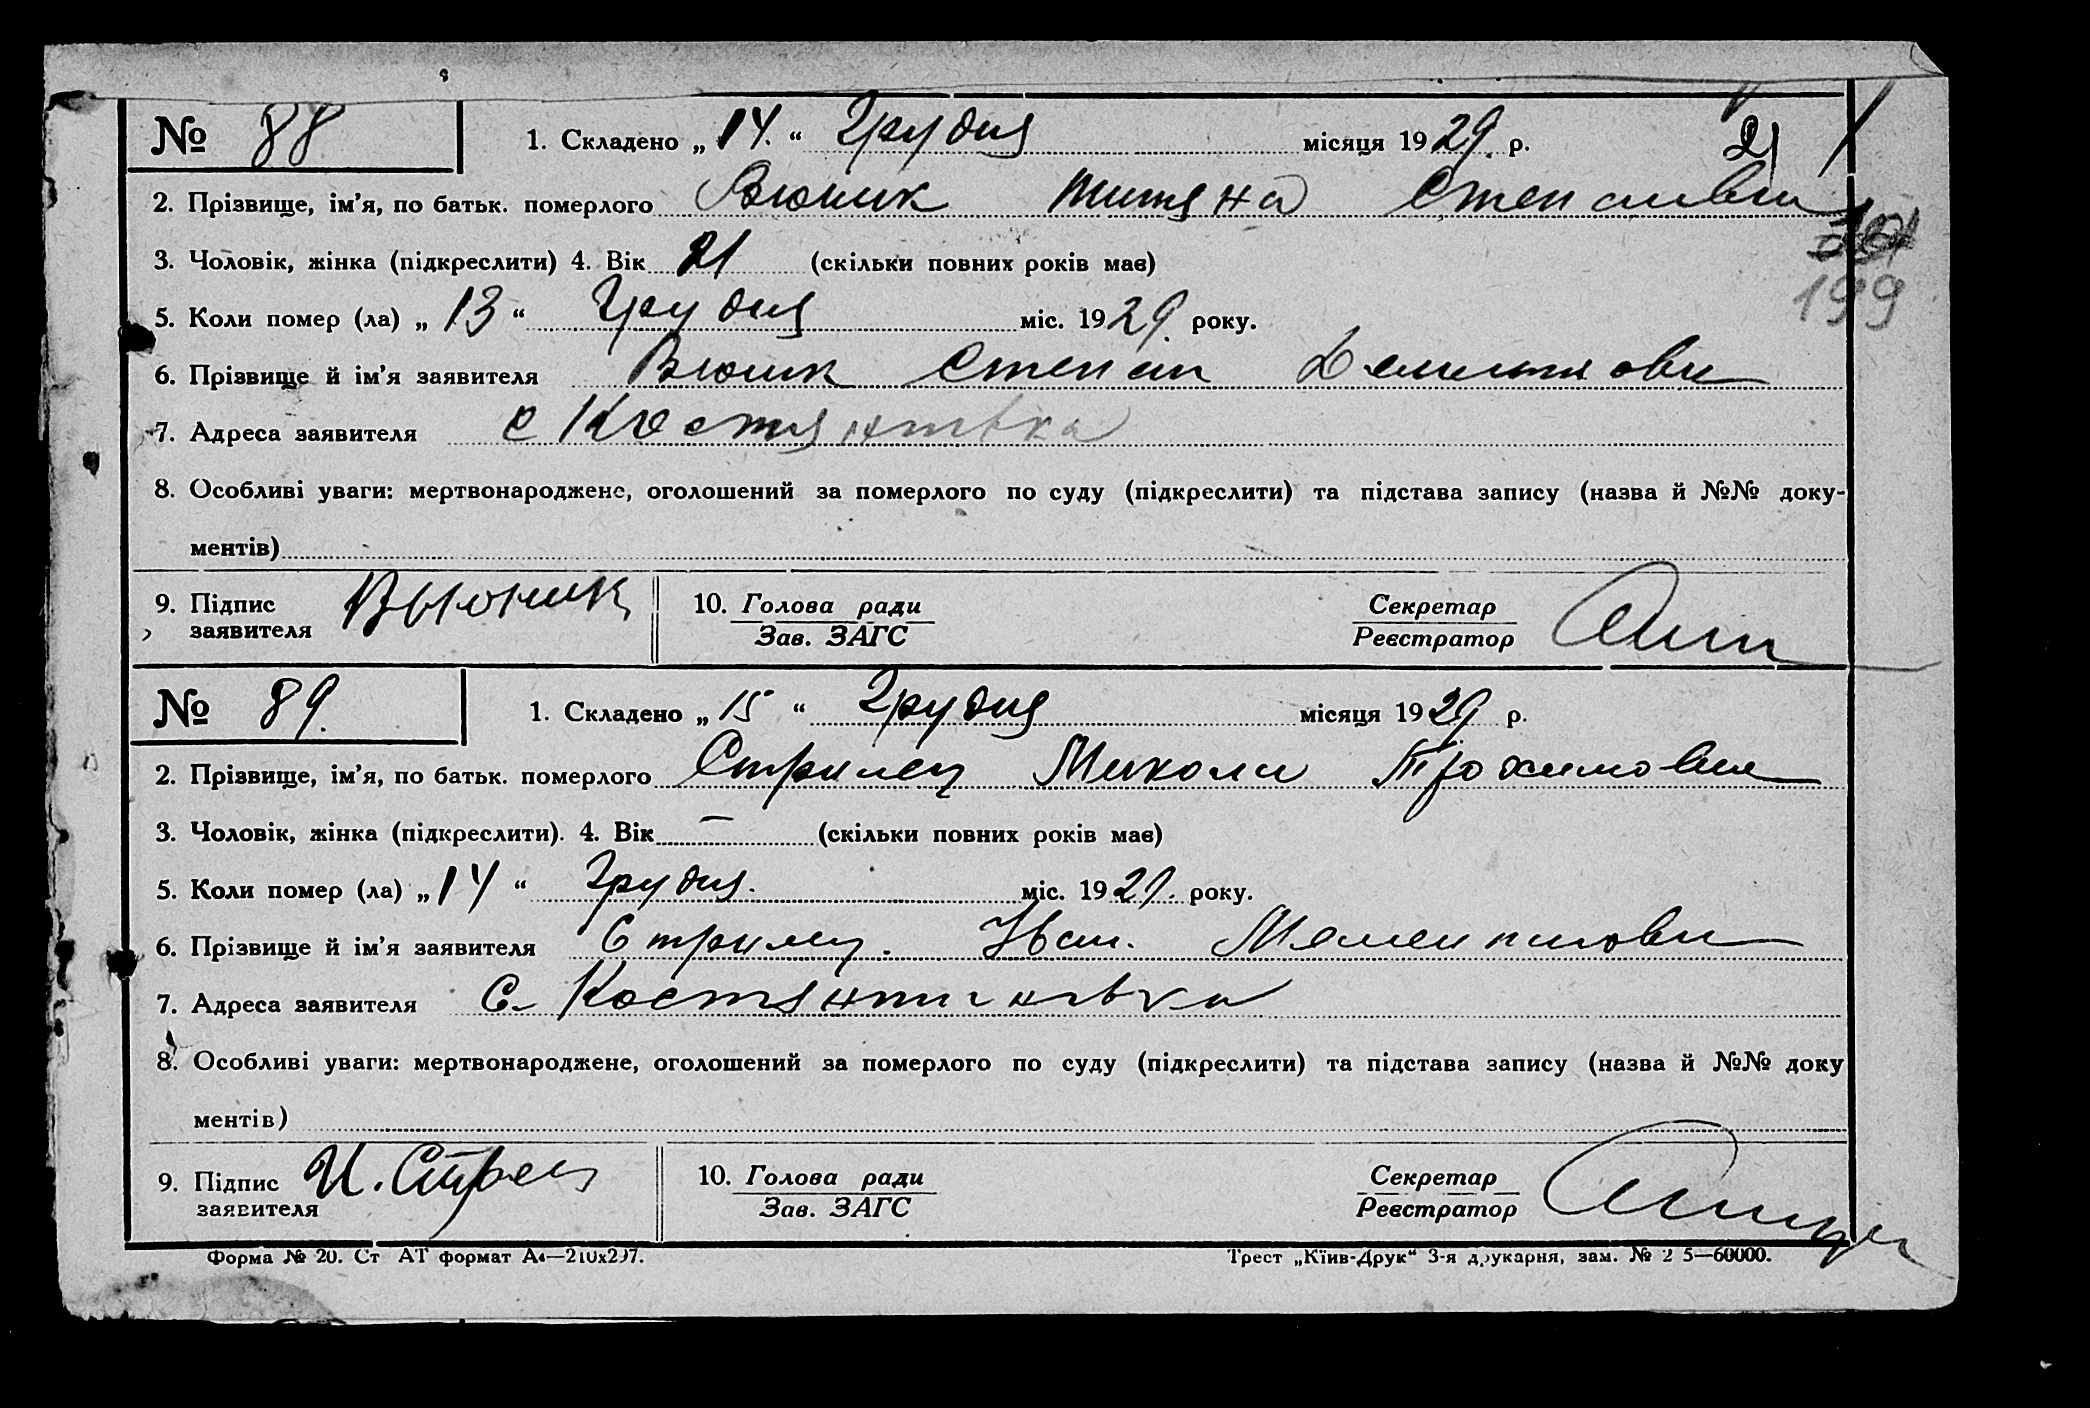 № 88 1. Складено „14.“ Грудня місяця 1929. р.
21
2. Прізвище, ім'я, по батьк. померлого Вюник Титяна Степанівна
3. Чоловік, жінка (підкреслити) 4. Вік 21 (скільки повних років має)
199
5. Коли помер (ла) „13“ Грудня міс. 1929. року.
6. Прізвище й ім'я заявителя Вюник Степан
7. Адреса заявителя с
8. Особливі уваги: мертвонароджене, оголошений за померлого по суду (підкреслити) та підстава запису (назва й №№ доку-
ментів)
9. Підпис заявителя Вьюник 10. Голова ради Секретар
Зав. ЗАГС Реєстратор
№ 89. 1. Складено „15“ Грудня місяця 1929 р.
2. Прізвище, ім'я, по батьк. померлого Стрилец Микола Трохимович
3. Чоловік, жінка (підкреслити). 4. Вік — (скільки повних років має)
5. Коли помер (ла) „14“ Грудня. міс. 1929. року.
6. Прізвище й ім'я заявителя Стрилец. Иван.
7. Адреса заявителя С. Костянтинівка
8. Особливі уваги: мертвонароджене, оголошений за померлого по суду (підкреслити) та підстава запису (назва й №№ доку
ментів)
9. Підпис заявителя И. Стрелец 10. Голова ради Секретар
Зав. ЗАГС Реєстратор
Форма № 20. Ст АТ формат А4—210x297. Трест „Київ-Друк“ 3-я друкарня, зам. № 2 5—60000.